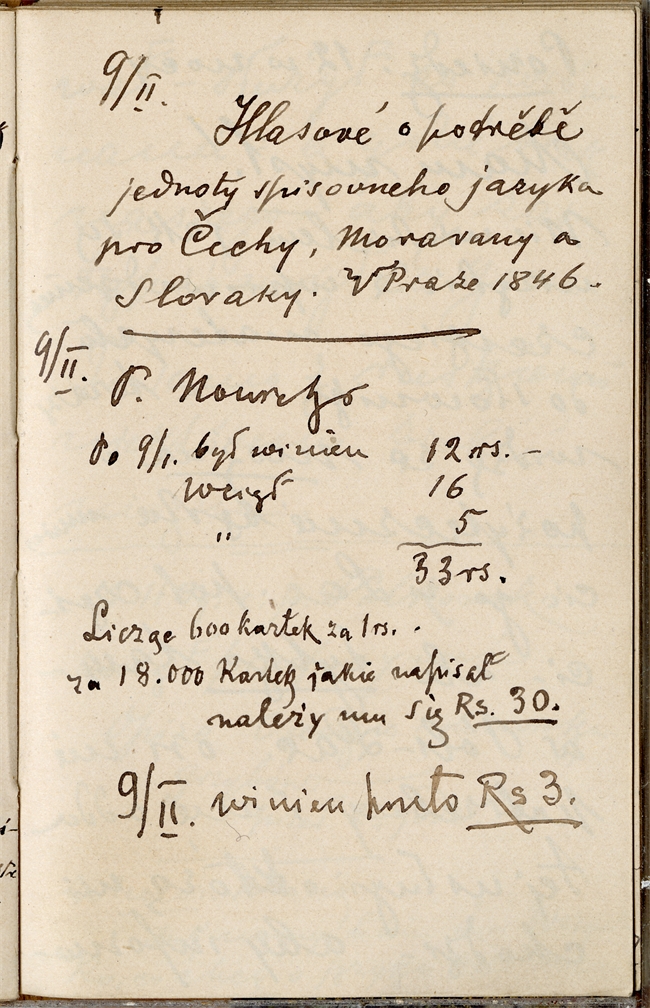 9/II.
Hlasové o potrěbě
jednoty spisovneho jazyka
pro Čechy, Moravany a
Slovaky. W Praze 1846.
9/II. P.
Do 9/I. był winien 12 rs. –
Wziął 16
" 5
33 rs.
Licząc 600 kartek za 1 rs.
za 18.000 Kartek jakie napisał
należy mu się Rs. 30.
9/II. winien Rs 3.